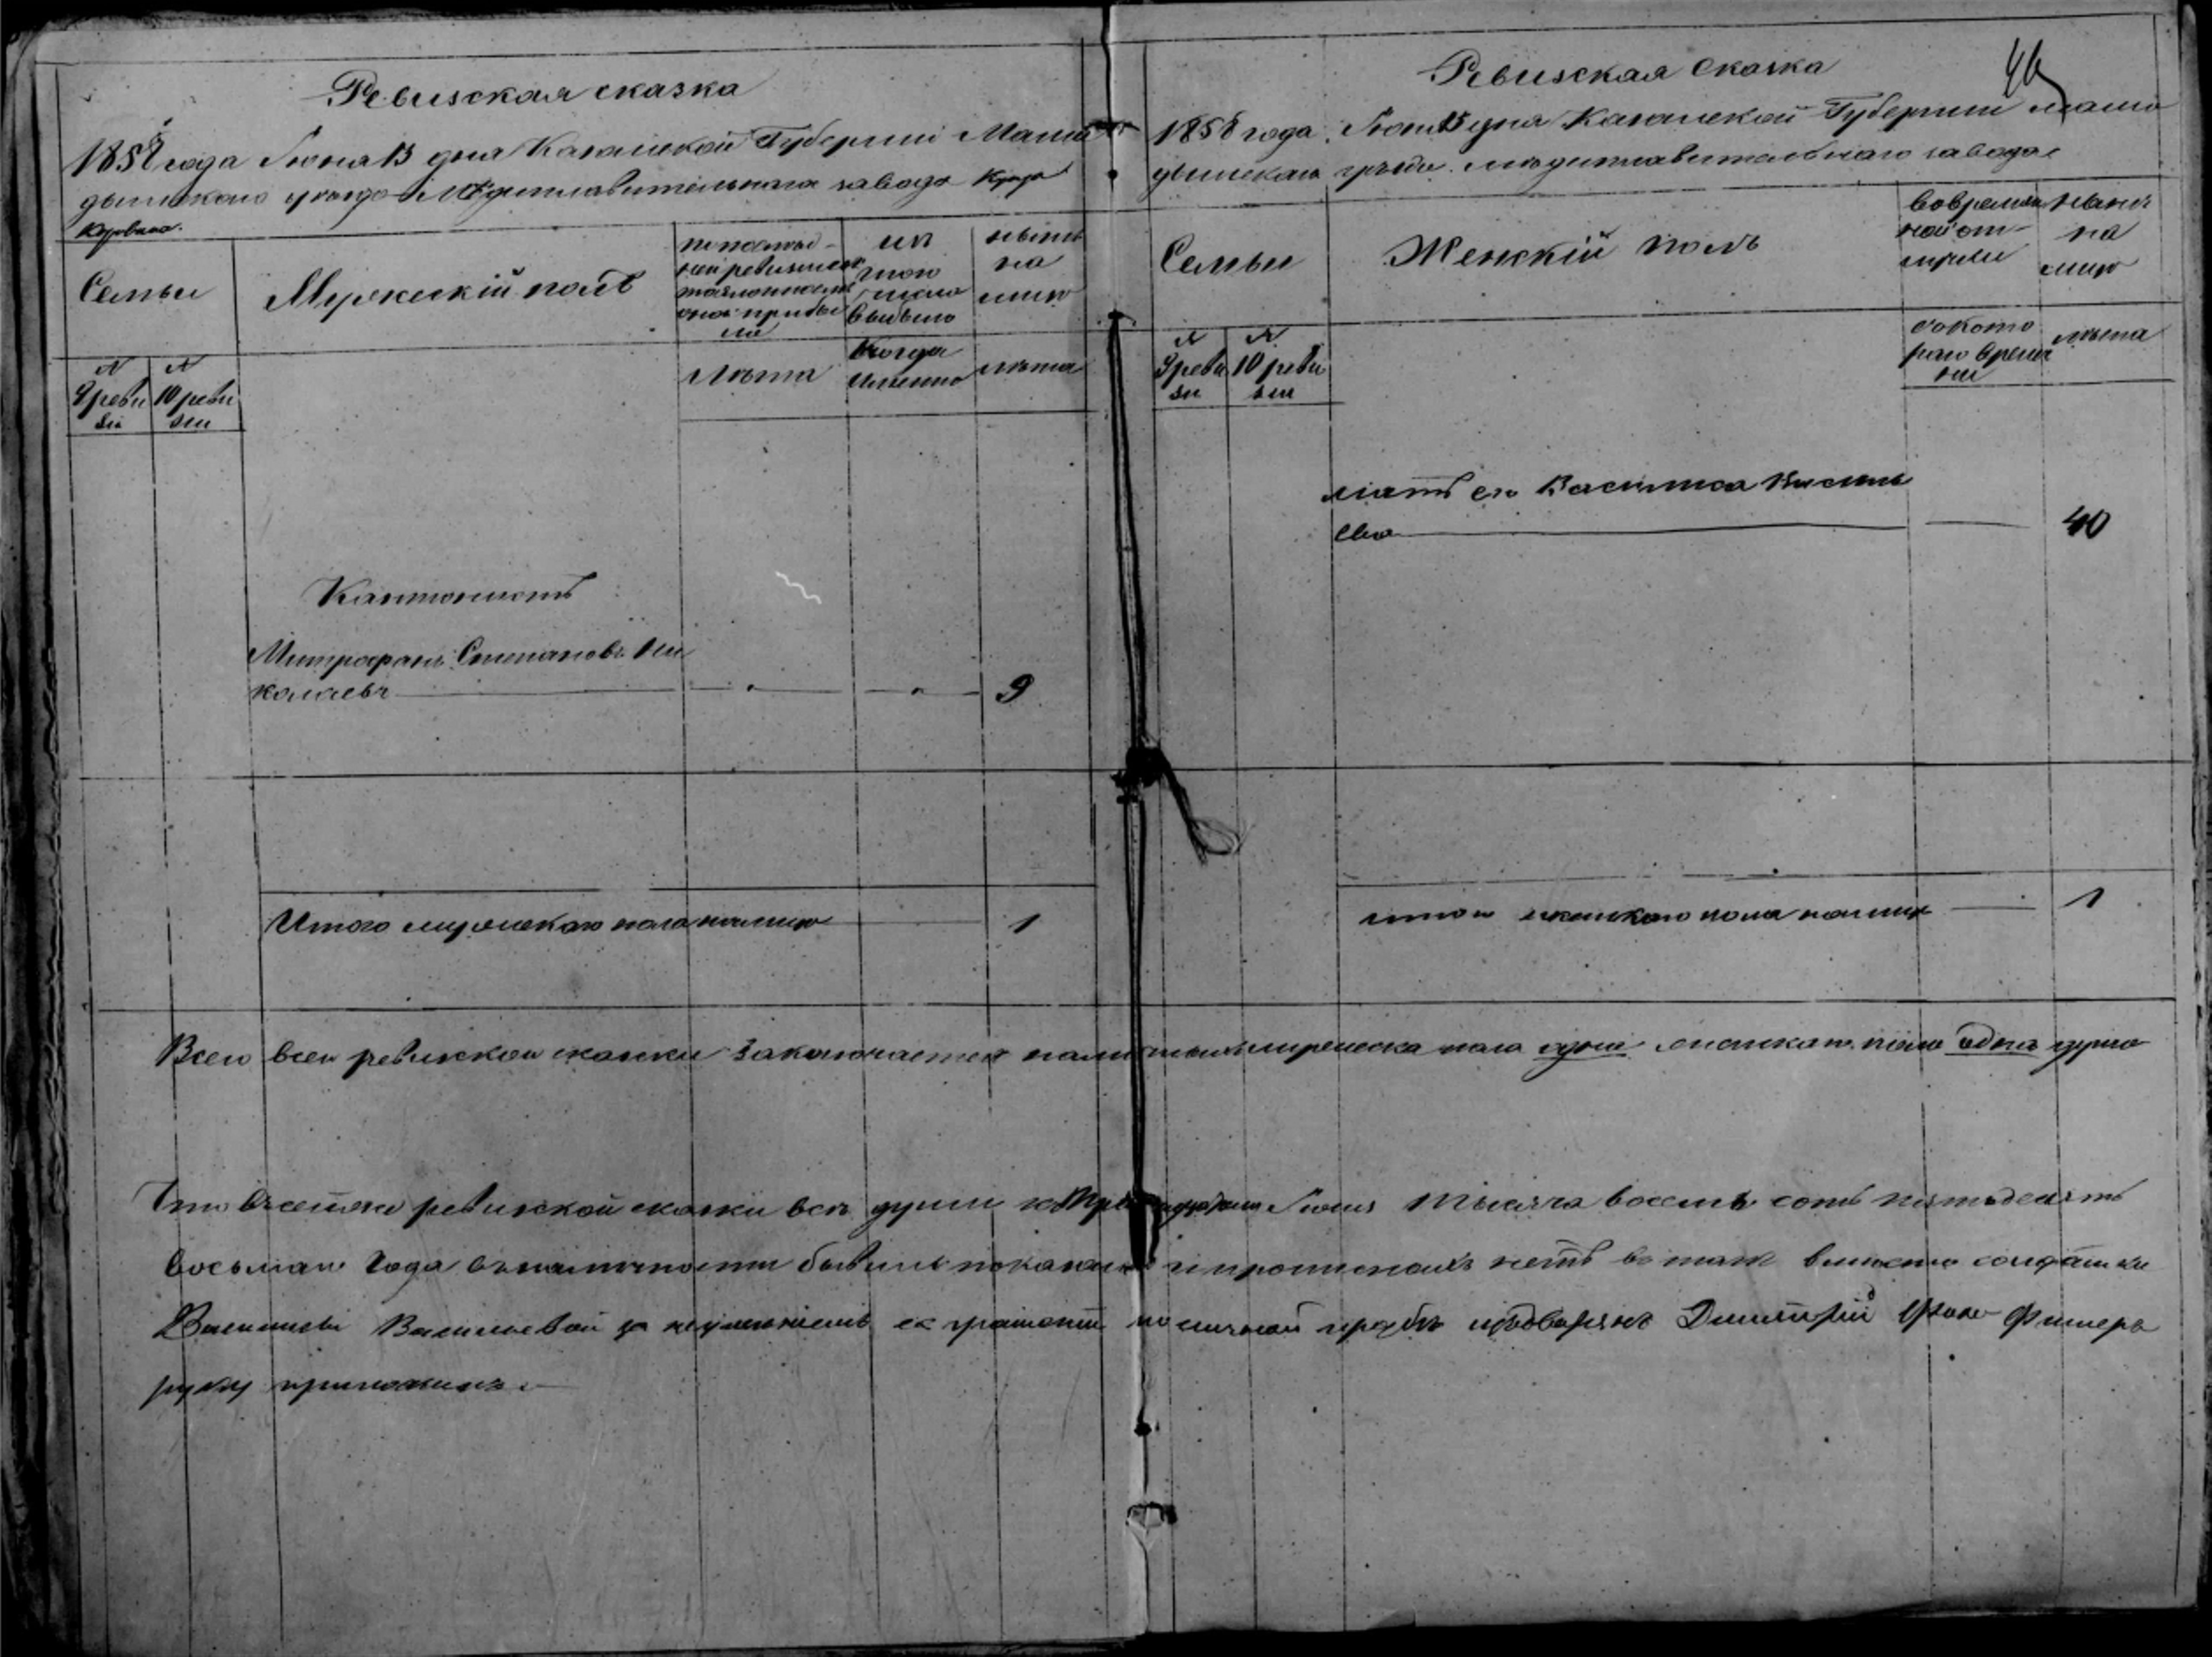 Ревизская сказка
1858 года Июня 13 дня Казанской Губерніи Мама
дышскаго уѣзда Мѣдиплавительнага завода
Семьи
Мужескій полъ
по послѣд
ней ревизіи сос
тояло и послѣ
оной прибы
ло
изъ
того
числа
выбыло
нынѣ
на
лицо
№
9 реви
зіи
№
10 реви
зіи
лѣта
Когда
именно
лѣта
Кантонистъ
Митрофанъ Степановъ Ни
колаевъ
9
Итого мужескаго пола налицо 1
Ревизская Сказка
1858 года Июня 13 дня Казанской Губерніи мама
дышскаго уѣзда мѣдиплавительнаго завода
Семьи
Женскій полъ
Вовремен
ной от-
лучки
нынѣ
на
лицо
№
9 реви
зіи
№
10 реви
зіи
съ кото
раго време
ни
лѣта
мать его Василиса Василь
ева 40
итого женскаго пола налицо 1
Всего в сей ревизской сказки заключается наличныхъ мужеска пола одна женскаго пола одна душа
Что въ сей ревизской сказки всѣ души къ Июня тысяча восемь сотъ пятьдесятъ
восьмаго года въ наличности бывшія показаны и прописныхъ нетъ въ томъ вместо солдатки
Василисы Васильевой за неуменіемъ ея грамоти по личной прозбѣ изъ дворянъ Димитрій Фишеръ
руку приложилъ